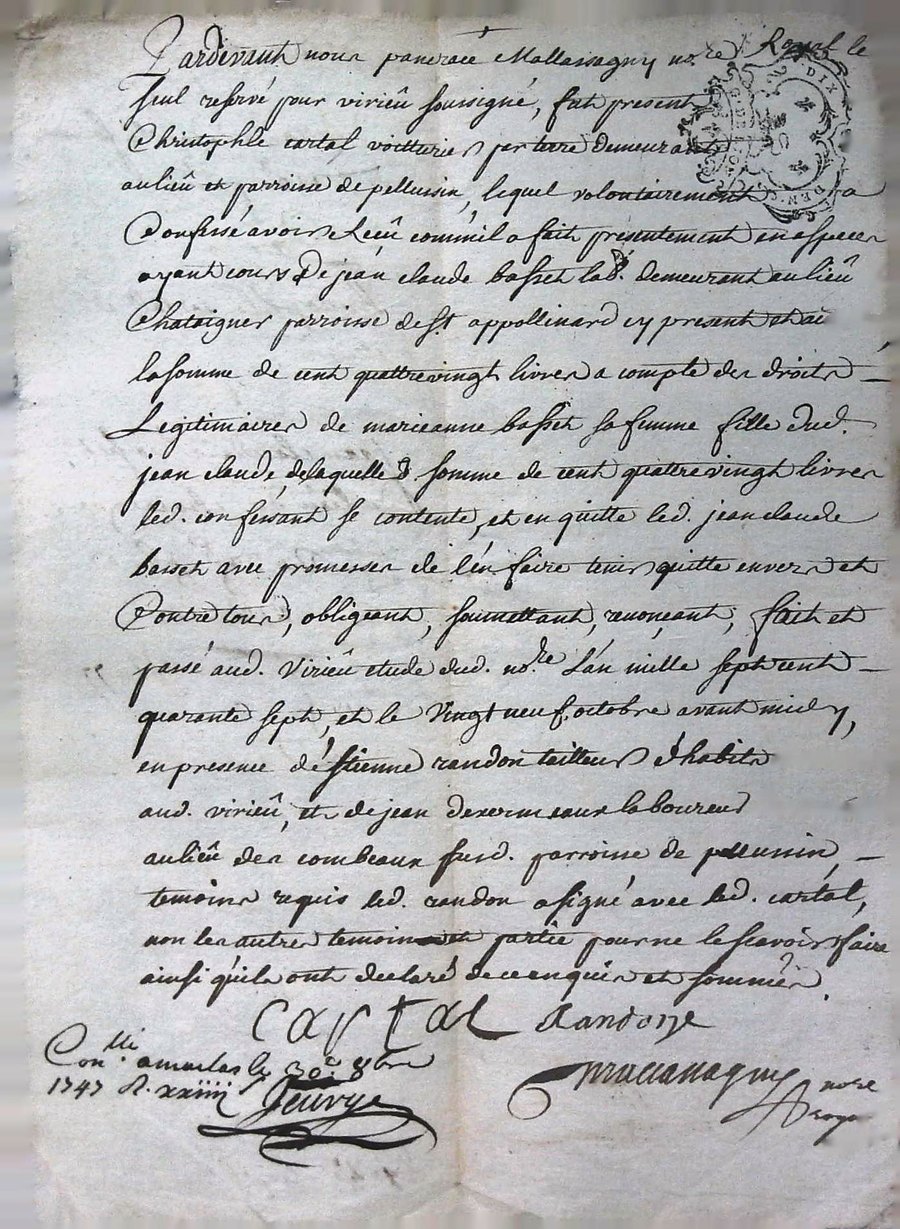 Pardevant nous pancrace Mallassagny no.re Royal le
seul reservé pour virieû soussigné, fut present
Christophle cartal voitturier par terre demeurant
au lieû et parroisse de pellussin, lequel volontairement a
Confessé avoir Receû comm'il a fait presentement en especes
ayant cours De jean claude basset lab.r demeurant au lieû
Chataigner parroisse de st. appollinard cy present et ac
la somme de cent quattre vingt livres a compte des droits
Legitimaires de marieanne basset sa femme fille dud.
jean claude de laquelle somme de cent quattre vingt livres
led. confessant se contente, et en quitte led. jean claude
basset avec promesses de l'en faire tenir quitte envers et
Contre tous, obligeant, soumettant, renonçant, fait et
passé aud. Virieû etude dud. no.re L'an mille sept cent
quarante sept, et le Vingt neuf octobre avant midy,
en presence d'éstienne randon tailleur d'habits
aud. virieû, et de jean laboureur
au lieu des combeaux susd. parroisse de pelussin
temoins requis led. randon a signé avec led. cartal,
non les autres temoin et partie pour ne le scavoir faire
ainsi qu'ils ont declaré de ce enquis et sommés
Cartal Randon
Con.lle a maclas le 30e 8bre
1747 R. xxiiii
no.re
roya
DIX DEN.